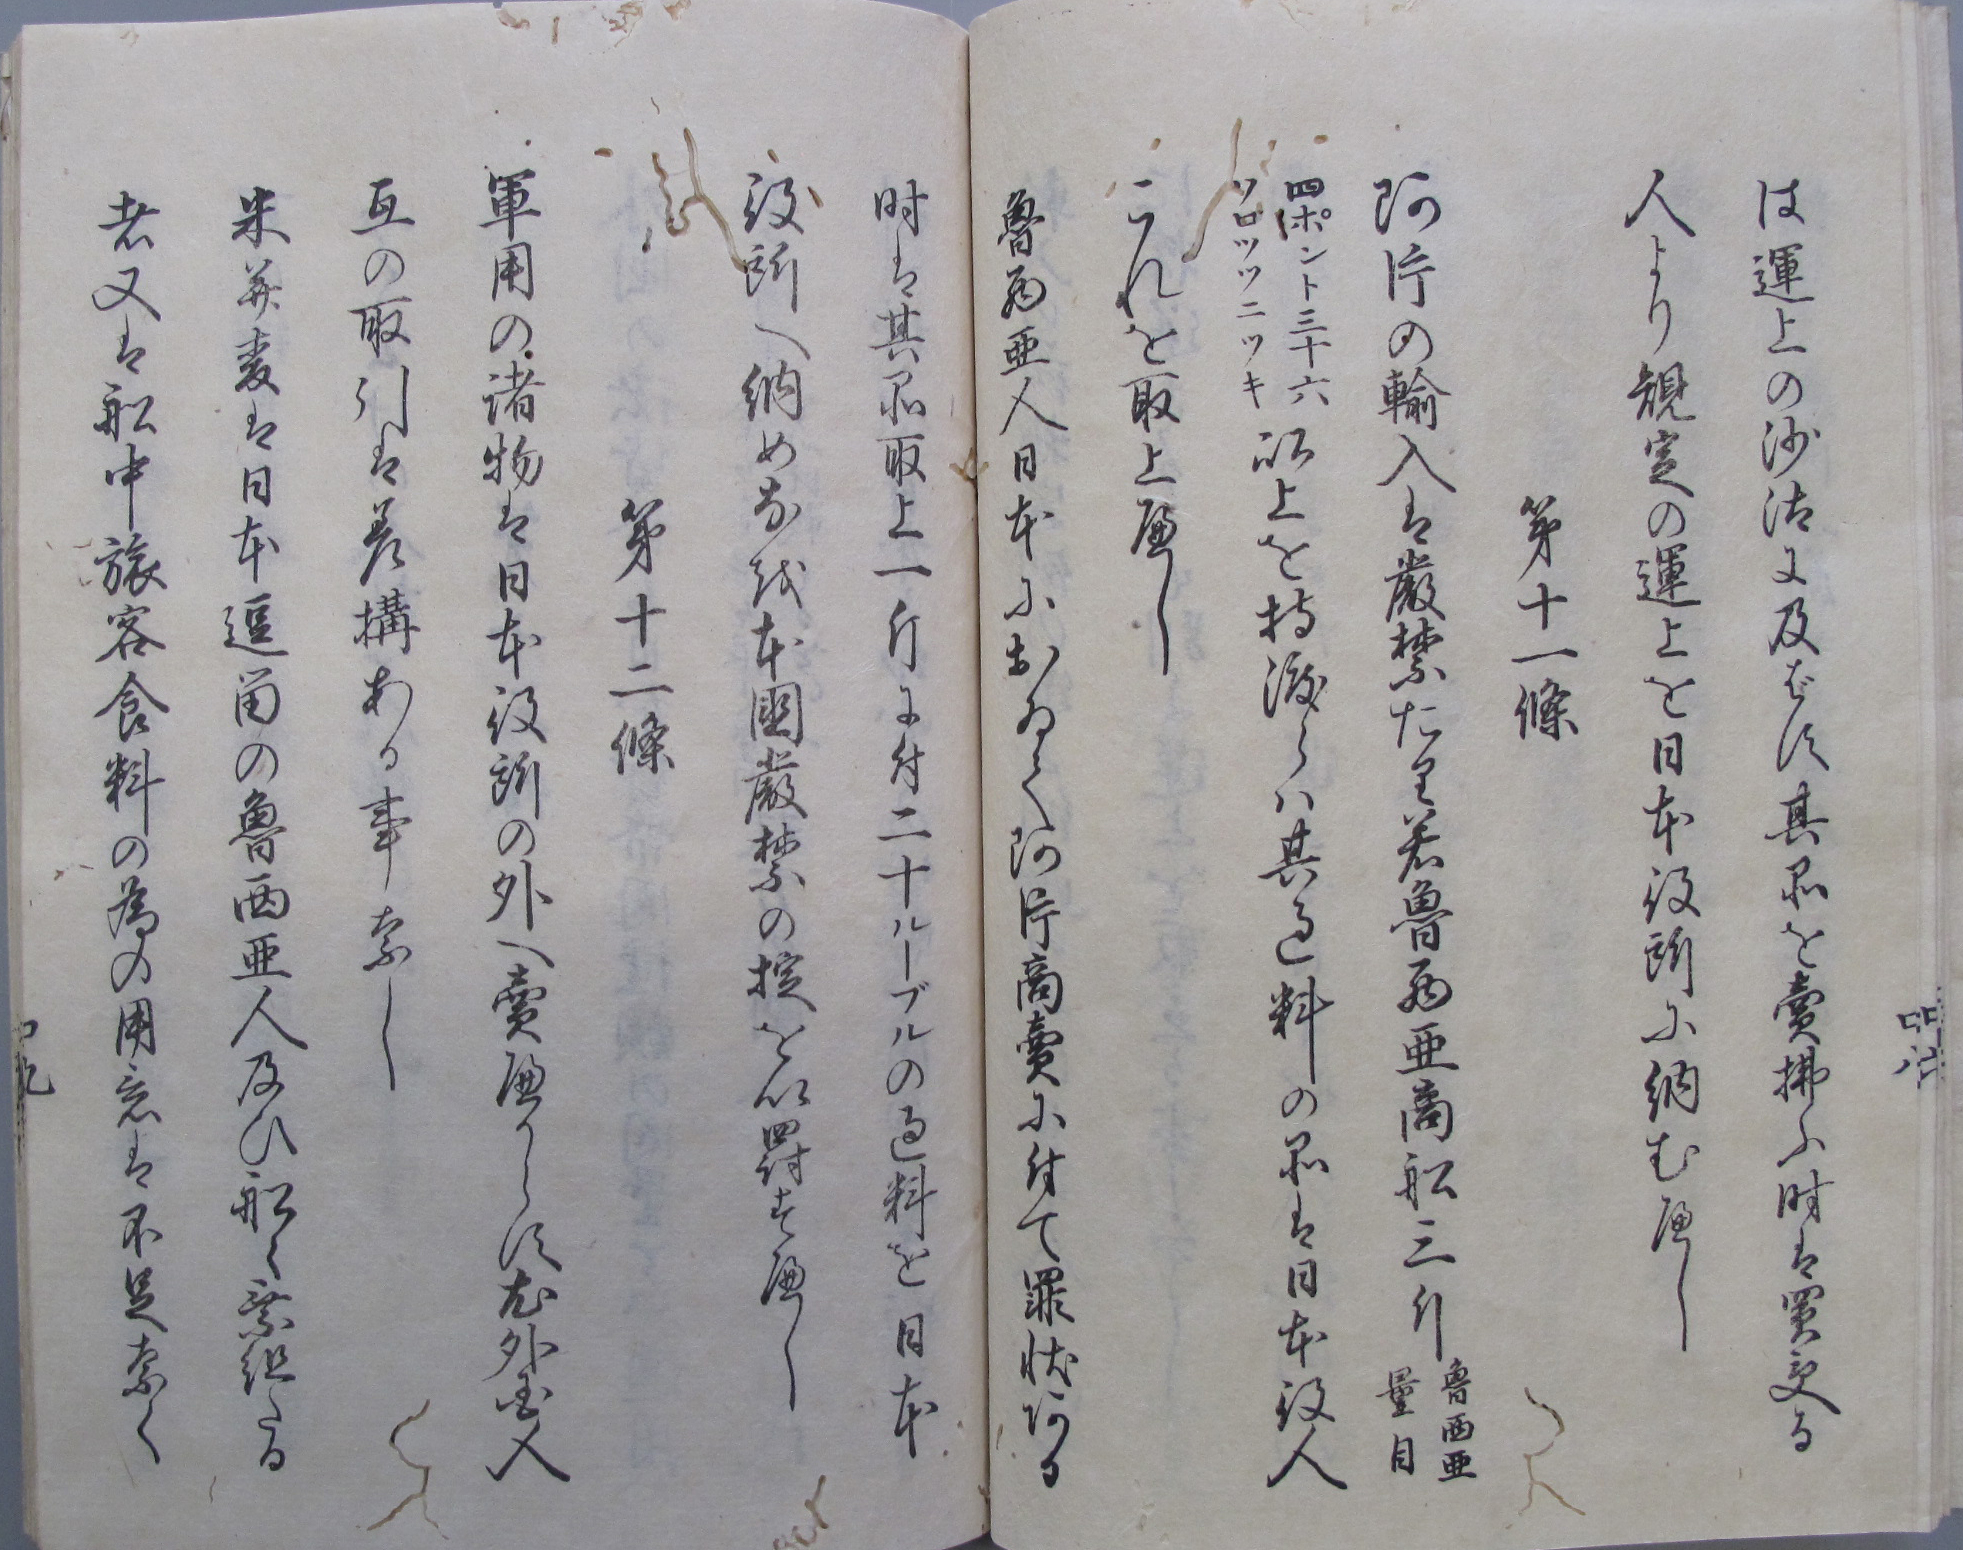 は運上の沙汰に及はす其品を賣拂ふ時は買受る
人より規定の運上を日本役所に納む へし
第十一條
阿片の輸入は嚴禁たり若魯西亜商船三斤魯西亜量目
四ポント三十六ソロツツニツキ以上を持渡らハ其過料の品は日本役人
これを取上へし
魯西亜人日本におゐて阿片商賣に付て罪状ある
時は其品取上一斤に付二十ルーブルの過料を日本
役所へ納めなは本國嚴禁の掟を以罰すへし
第十二條
軍用の諸物は日本役所の外へ賣へからす尤外国人
互の取引は差構ある事なし
米并麦は日本逗留の魯西亜人及ひ船々乗組たる
者又は船中旅客食料の為の用意は不足なく